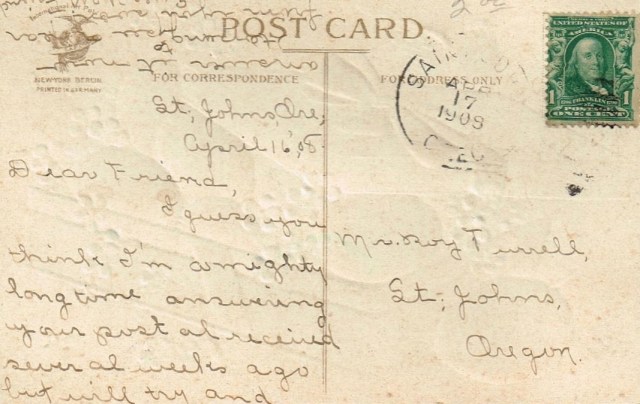 POST CARD
NEW YORK BERLIN
PRINTED IN GERMANY
FOR CORRESPONDENCE
FOR ADDRESS ONLY
St. Johns, Ore,
April 16, '08.
Dear Friend,
I guess you
think I'm a mighty
long time answering
your postal received
several weeks ago
but will try and
SAIN
APR
17
1908
UNITED STATES OF
AMERICA
FRANKLIN
1 POSTAGE 1
ONE CENT
Mr. Roy Turrell,
St. Johns,
Oregon.